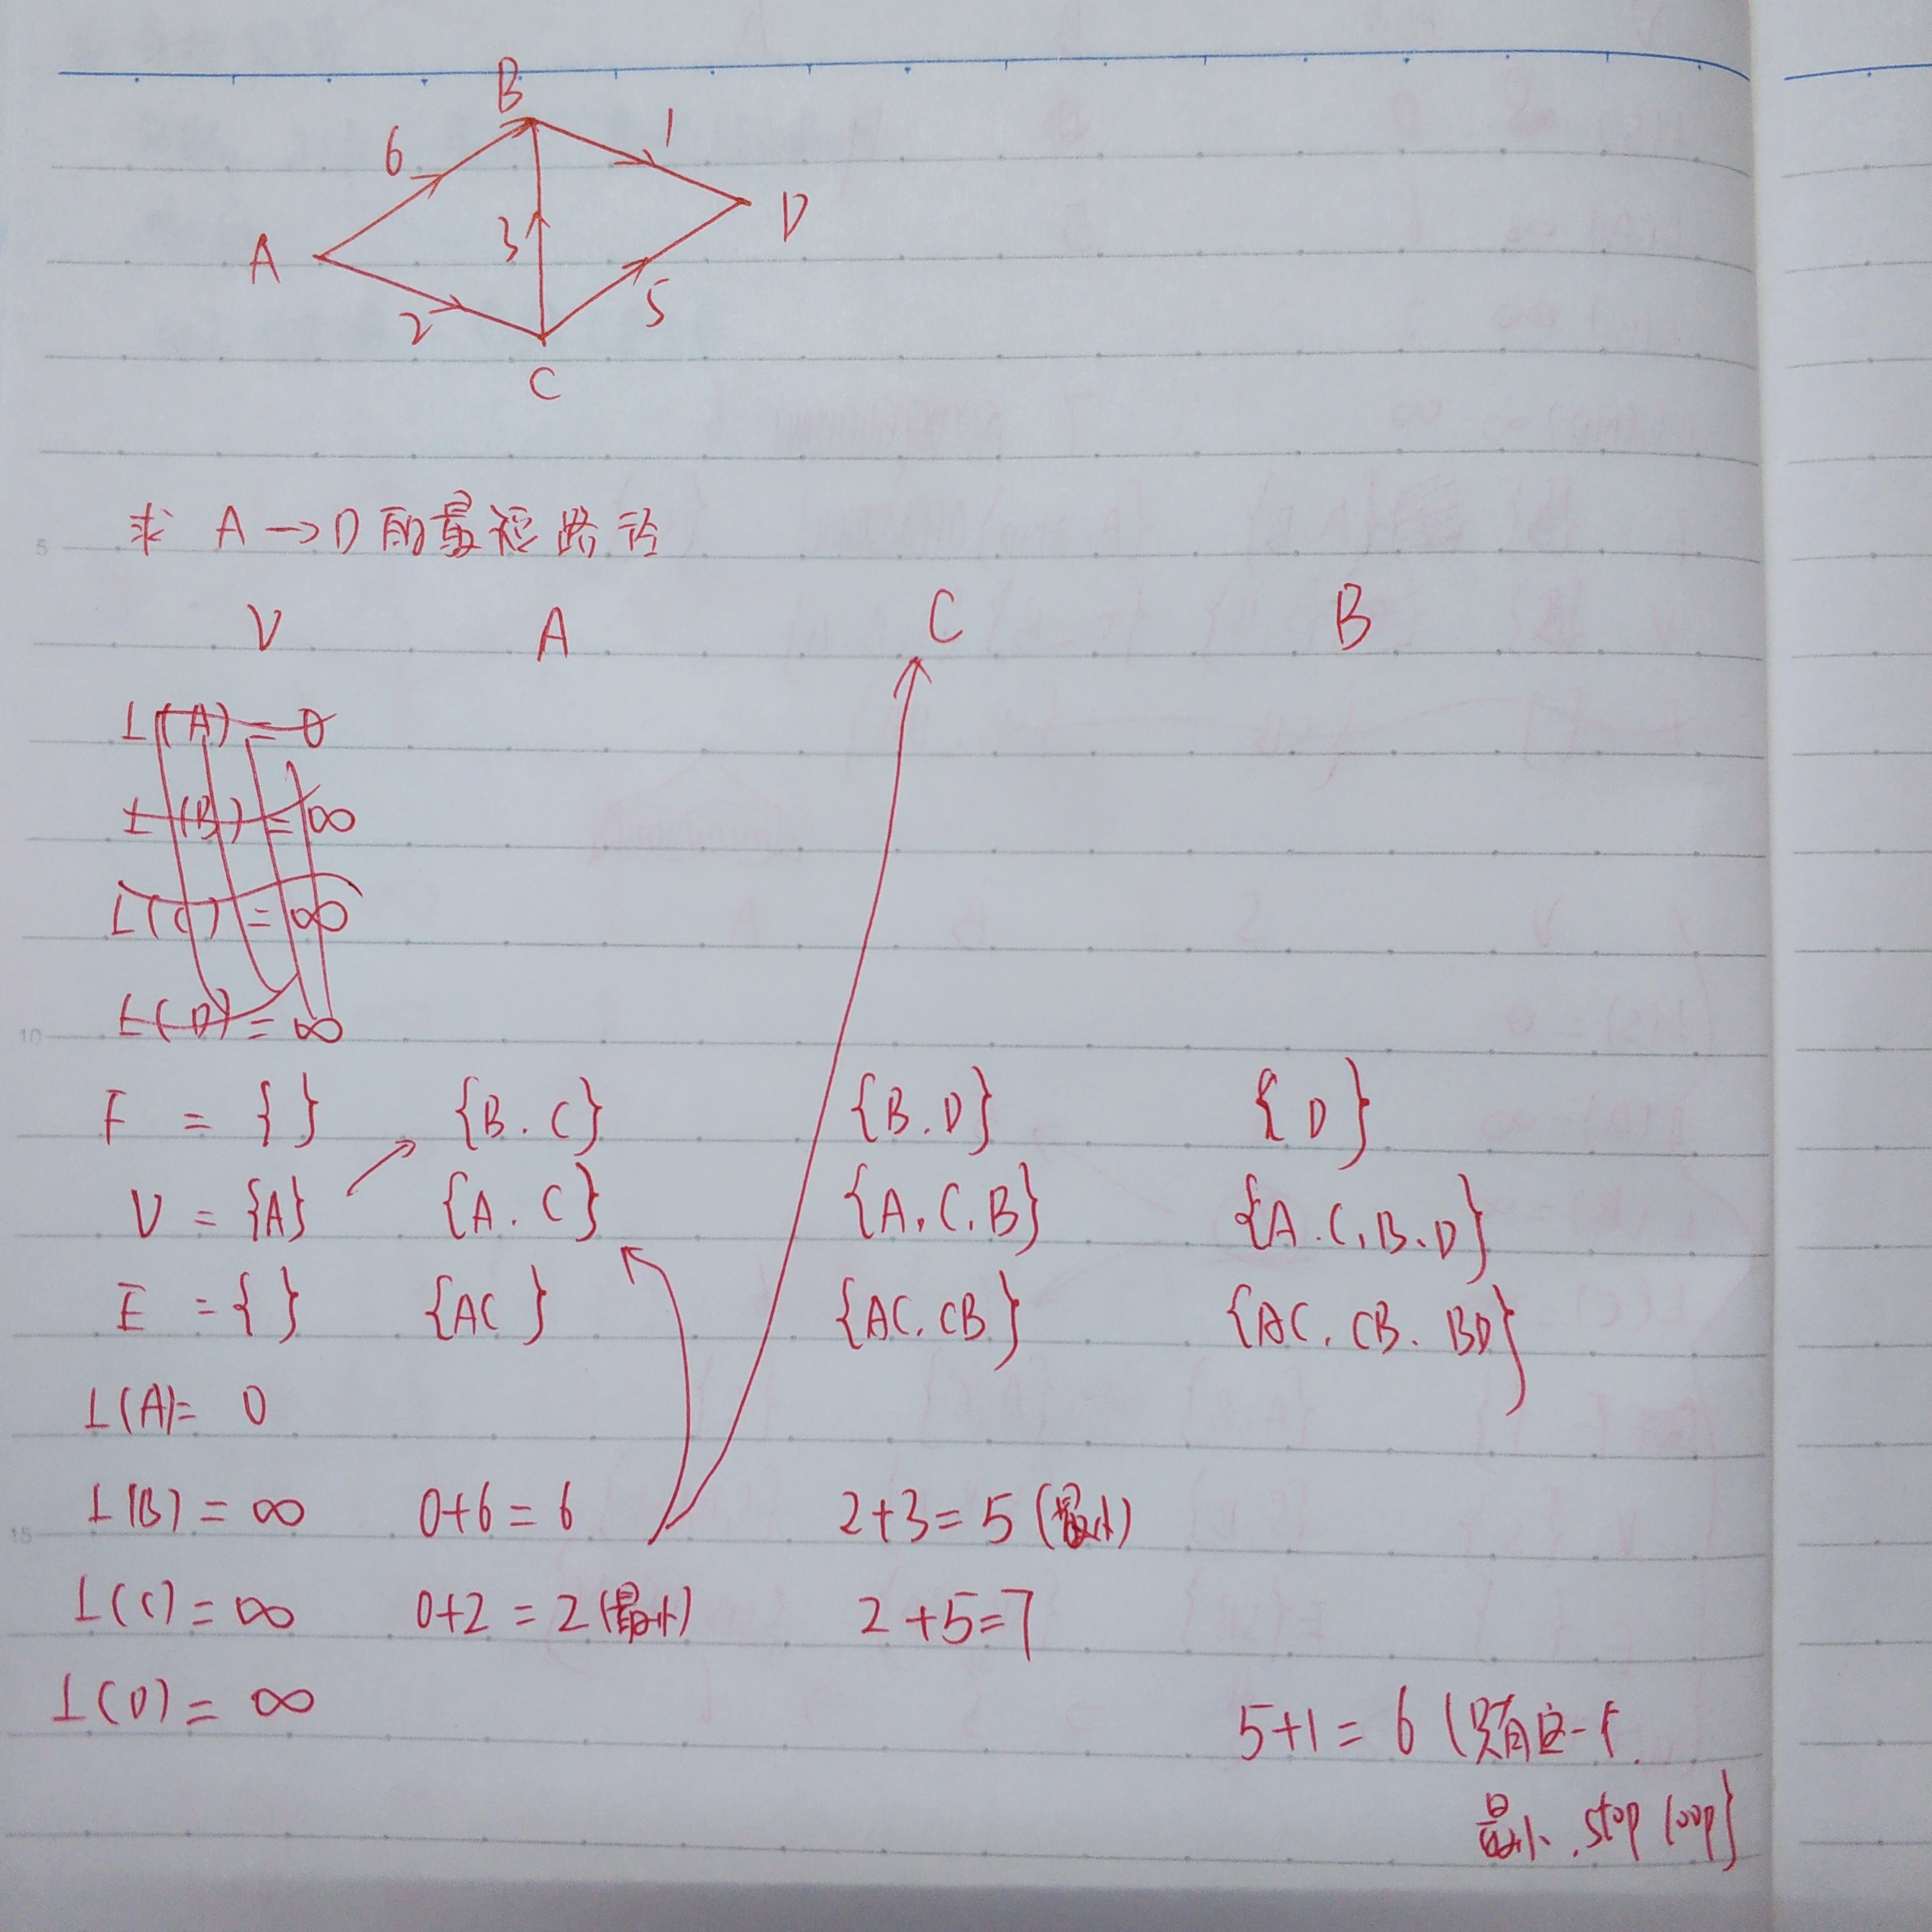 B
6
1
A
3
D
2
5
C
求 A→D 的最短路径
V A C B
L(A) = 0
L(B) = ∞
L(C) = ∞
L(D) = ∞
F = { } {B.C} {B.D} {D}
V = {A} {A.C} {A,C,B} {A.C,B.D}
E = { } {AC} {AC.CB} {AC.CB.BD}
L(A)= 0
L(B) = ∞ 0+6=6 2+3=5 (最小)
L(C) = ∞ 0+2=2 (最小) 2+5=7
L(D) = ∞ 5+1=6 (只有这一个.
最小.stop loop}
5
10
15